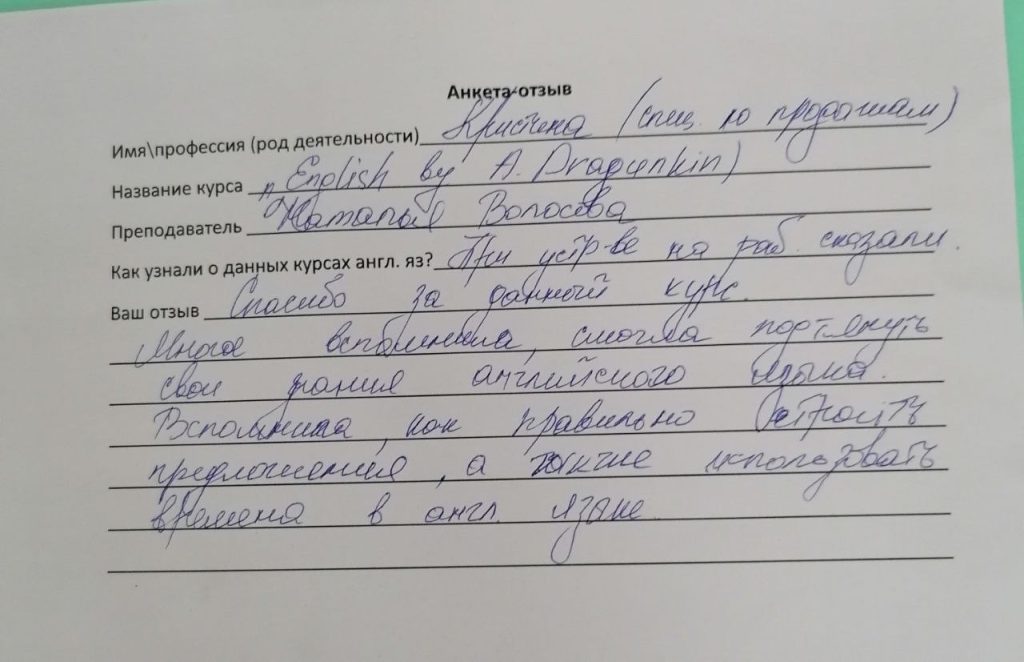 Анкета-отзыв
Имя\профессия (род деятельности) Кристина (спец. по продажам)
Название курса „English by A. Dragunkin)
Преподаватель Наталья Волосова
Как узнали о данных курсах англ. яз? При устр-ве на раб. сказали.
Ваш отзыв Спасибо за данный курс.
Многое вспомнила, смогла подтянуть
свои знания английского языка.
Вспомнила, как правильно строить
предложения, а также использовать
времена в англ. языке